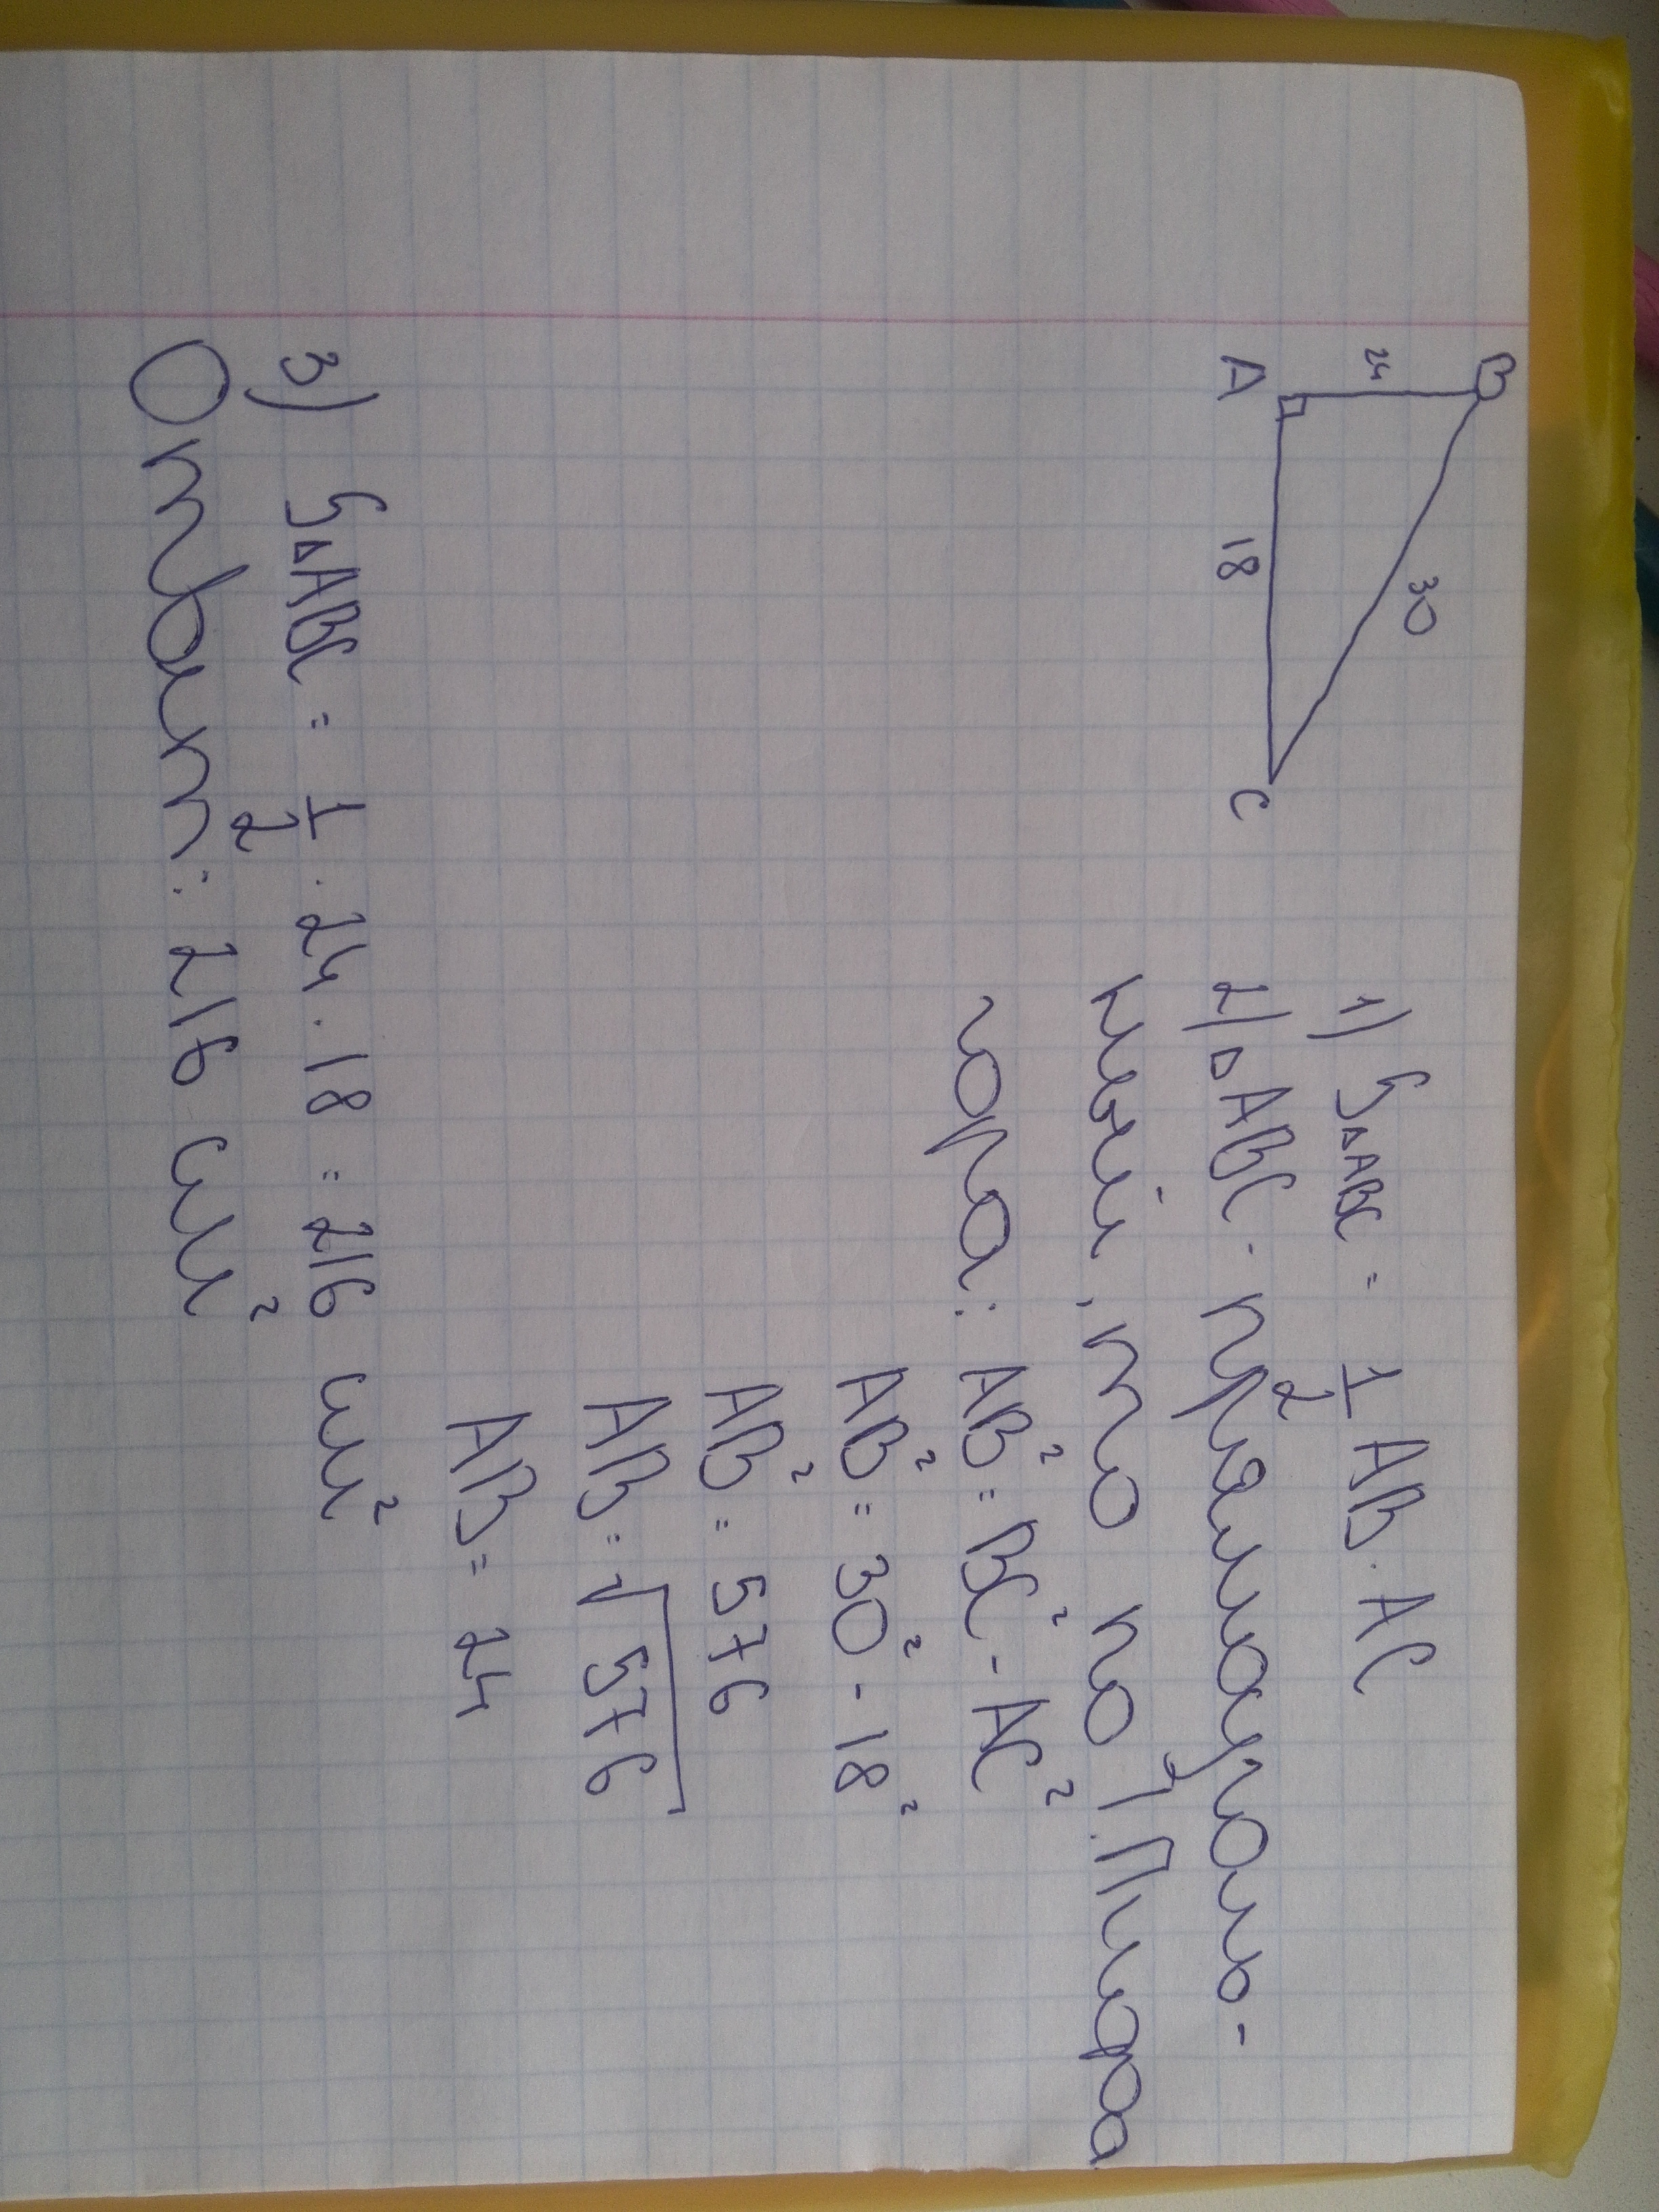 B
24
30
A
18
C
1) S△ABC = 1/2 AB · AC
2) △ABC - прямоуголь-
ный, то по т. Пифа
гора:
AB² = BC² - AC²
AB² = 30² - 18²
AB² = 576
AB = √576
AB = 24
3) S△ABC = 1/2 · 24 · 18 = 216 см²
Ответ: 216 см²